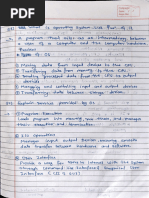 Q.1) What is operating system and Task of it
→ A program that acts as an intermediary between
a user of a computer and the computer hardware
① Moving data from input device to the CPU
② Transferring data from memory to the CPU
③ Transferring processed data from the CPU to output
devices
④ Managing and controlling input and output devices
⑤ Transferring data between storage drives.
Explain services provided by OS
① Program Execution
Loads program into memory, runs them, and manages
their execution and
② I/O operation
Manages input output devices, ensuring smooth
data transfer between hardware and software.
③ User Interface
Provide a way for users to interact with the system
through Command Line Interface, Graphical User
Interface